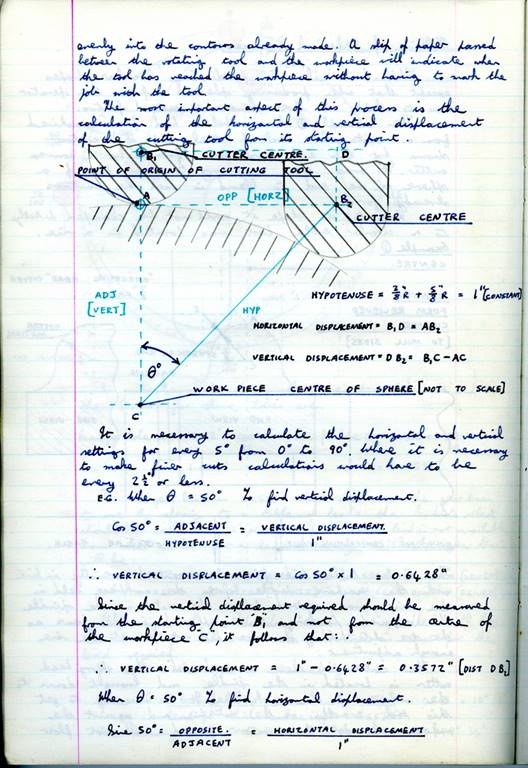 evenly into the contours already made. A slip of paper passed
between the rotating tool and the workpiece will indicate when
the tool has reached the workpiece without having to mark the
job with the tool
The most important aspect of this process is the
calculation of the horizontal and vertical displacement
of the cutting tool from its starting point.
B₁ CUTTER CENTRE. D
POINT OF ORIGIN OF CUTTING TOOL
A OPP [HORZ] B₂
CUTTER CENTRE
ADJ
[VERT]
HYP
HYPOTENUSE = 3/8"R + 5/8"R = 1" (CONSTANT)
HORIZONTAL DISPLACEMENT = B₁D = AB₂
VERTICAL DISPLACEMENT = DB₂ = B₁C – AC
θ°
WORK PIECE CENTRE OF SPHERE [NOT TO SCALE]
C
It is necessary to calculate the horizontal and vertical
settings for every 5° from 0° to 90°. Where it is necessary
to make finer cuts calculations would have to be
every 2½° or less.
E.G. When θ = 50° To find vertical displacement.
Cos 50° = ADJACENT / HYPOTENUSE = VERTICAL DISPLACEMENT. / 1"
∴ VERTICAL DISPLACEMENT = Cos 50° × 1 = 0.6428"
Since the vertical displacement required should be measured
from the starting point "B₁" and not from the centre of
the workpiece "C", it follows that:-
∴ VERTICAL DISPLACEMENT = 1" – 0.6428" = 0.3572" [DIST DB₂]
When θ = 50° To find horizontal displacement.
Sine 50° = OPPOSITE. / ADJACENT = HORIZONTAL DISPLACEMENT / 1"